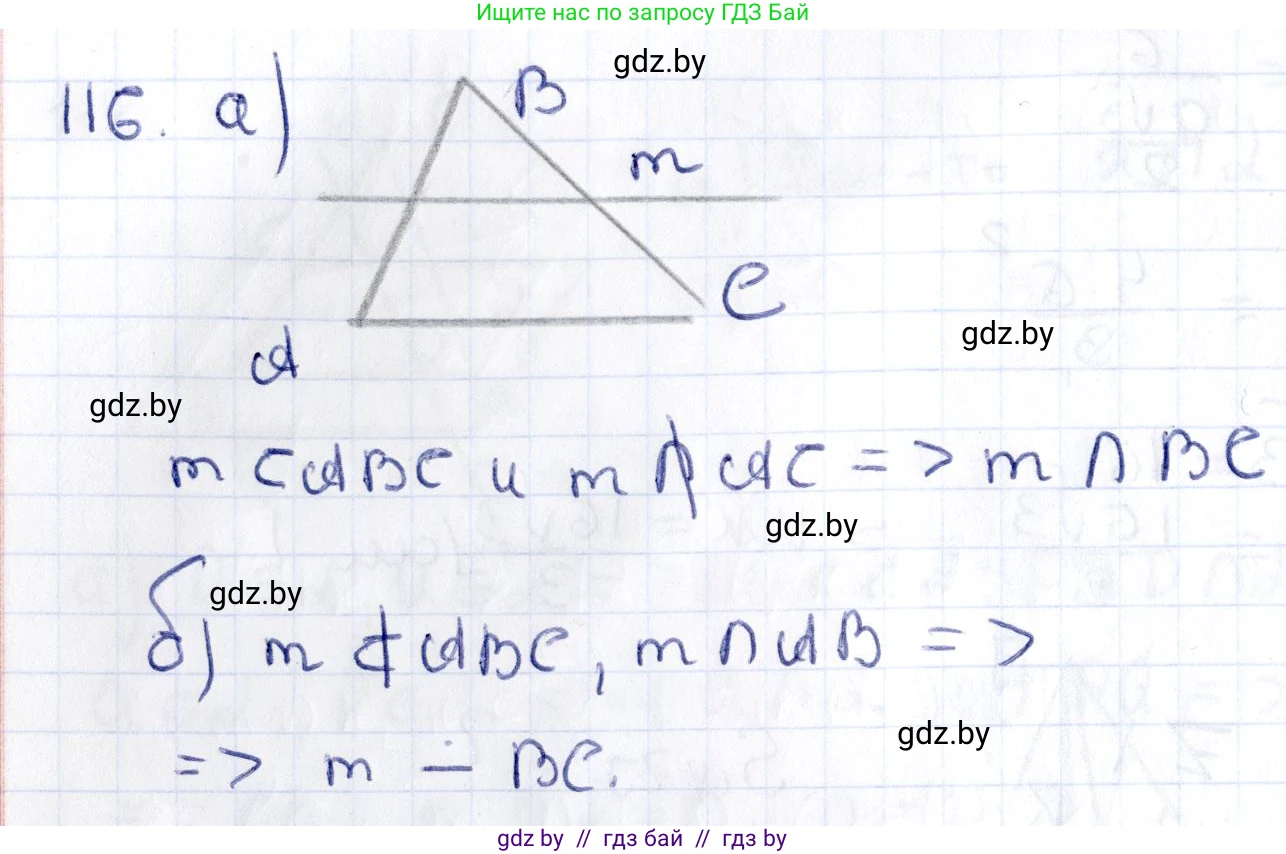 Ищите нас по запросу ГДЗ Бай
gdz.by
116. а)
B
m
C
gdz.by
A
gdz.by
m ⊂ ABC и m ∩̸ AC => m ∩ BC
gdz.by
gdz.by
б) m ⊄ ABC, m ∩ AB =>
gdz.by
=> m ∸ BC.
gdz.by // гдз бай // гдз by